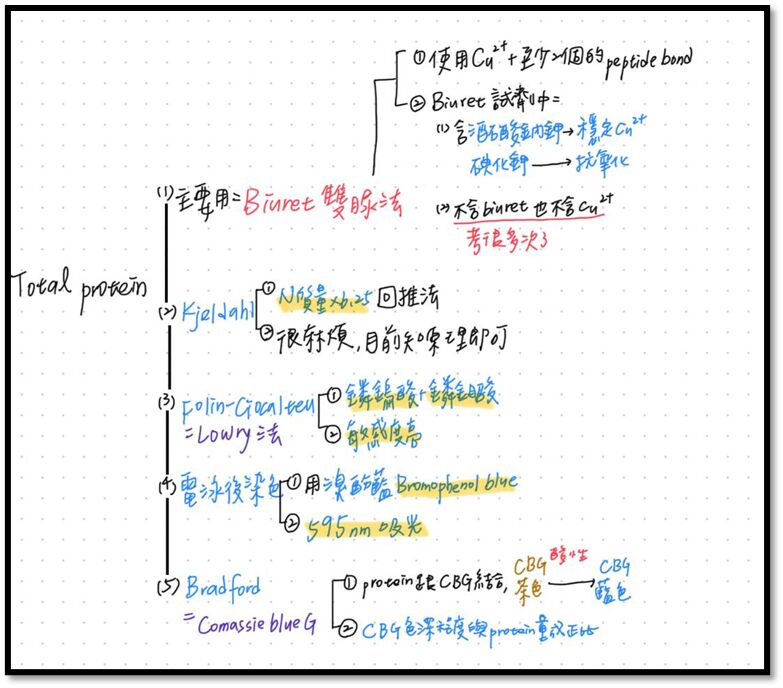 Total protein
(1) 主要用= Biuret 雙脲法
① 使用Cu²⁺+至少2個的peptide bond
② Biuret 試劑中=
(1) 含酒石酸鈉鉀→穩定Cu²⁺
碘化鉀→抗氧化
(2) 不含biuret 也不含Cu²⁺
考很多次了
(2) Kjeldahl
① N質量×6.25 回推法
② 很麻煩,目前知原理即可
(3) Folin-Ciocalteu
=Lowry法
① 鏻鎢酸+鏻鉬酸
② 敏感度高
(4) 電泳後染色
① 用溴酚藍 Bromophenol blue
② 595nm 吸光
(5) Bradford
=Comassie blue G
① protein跟CBG結合, CBG 茶色 酸性→ CBG 藍色
② CBG色深程度與protein量成正比